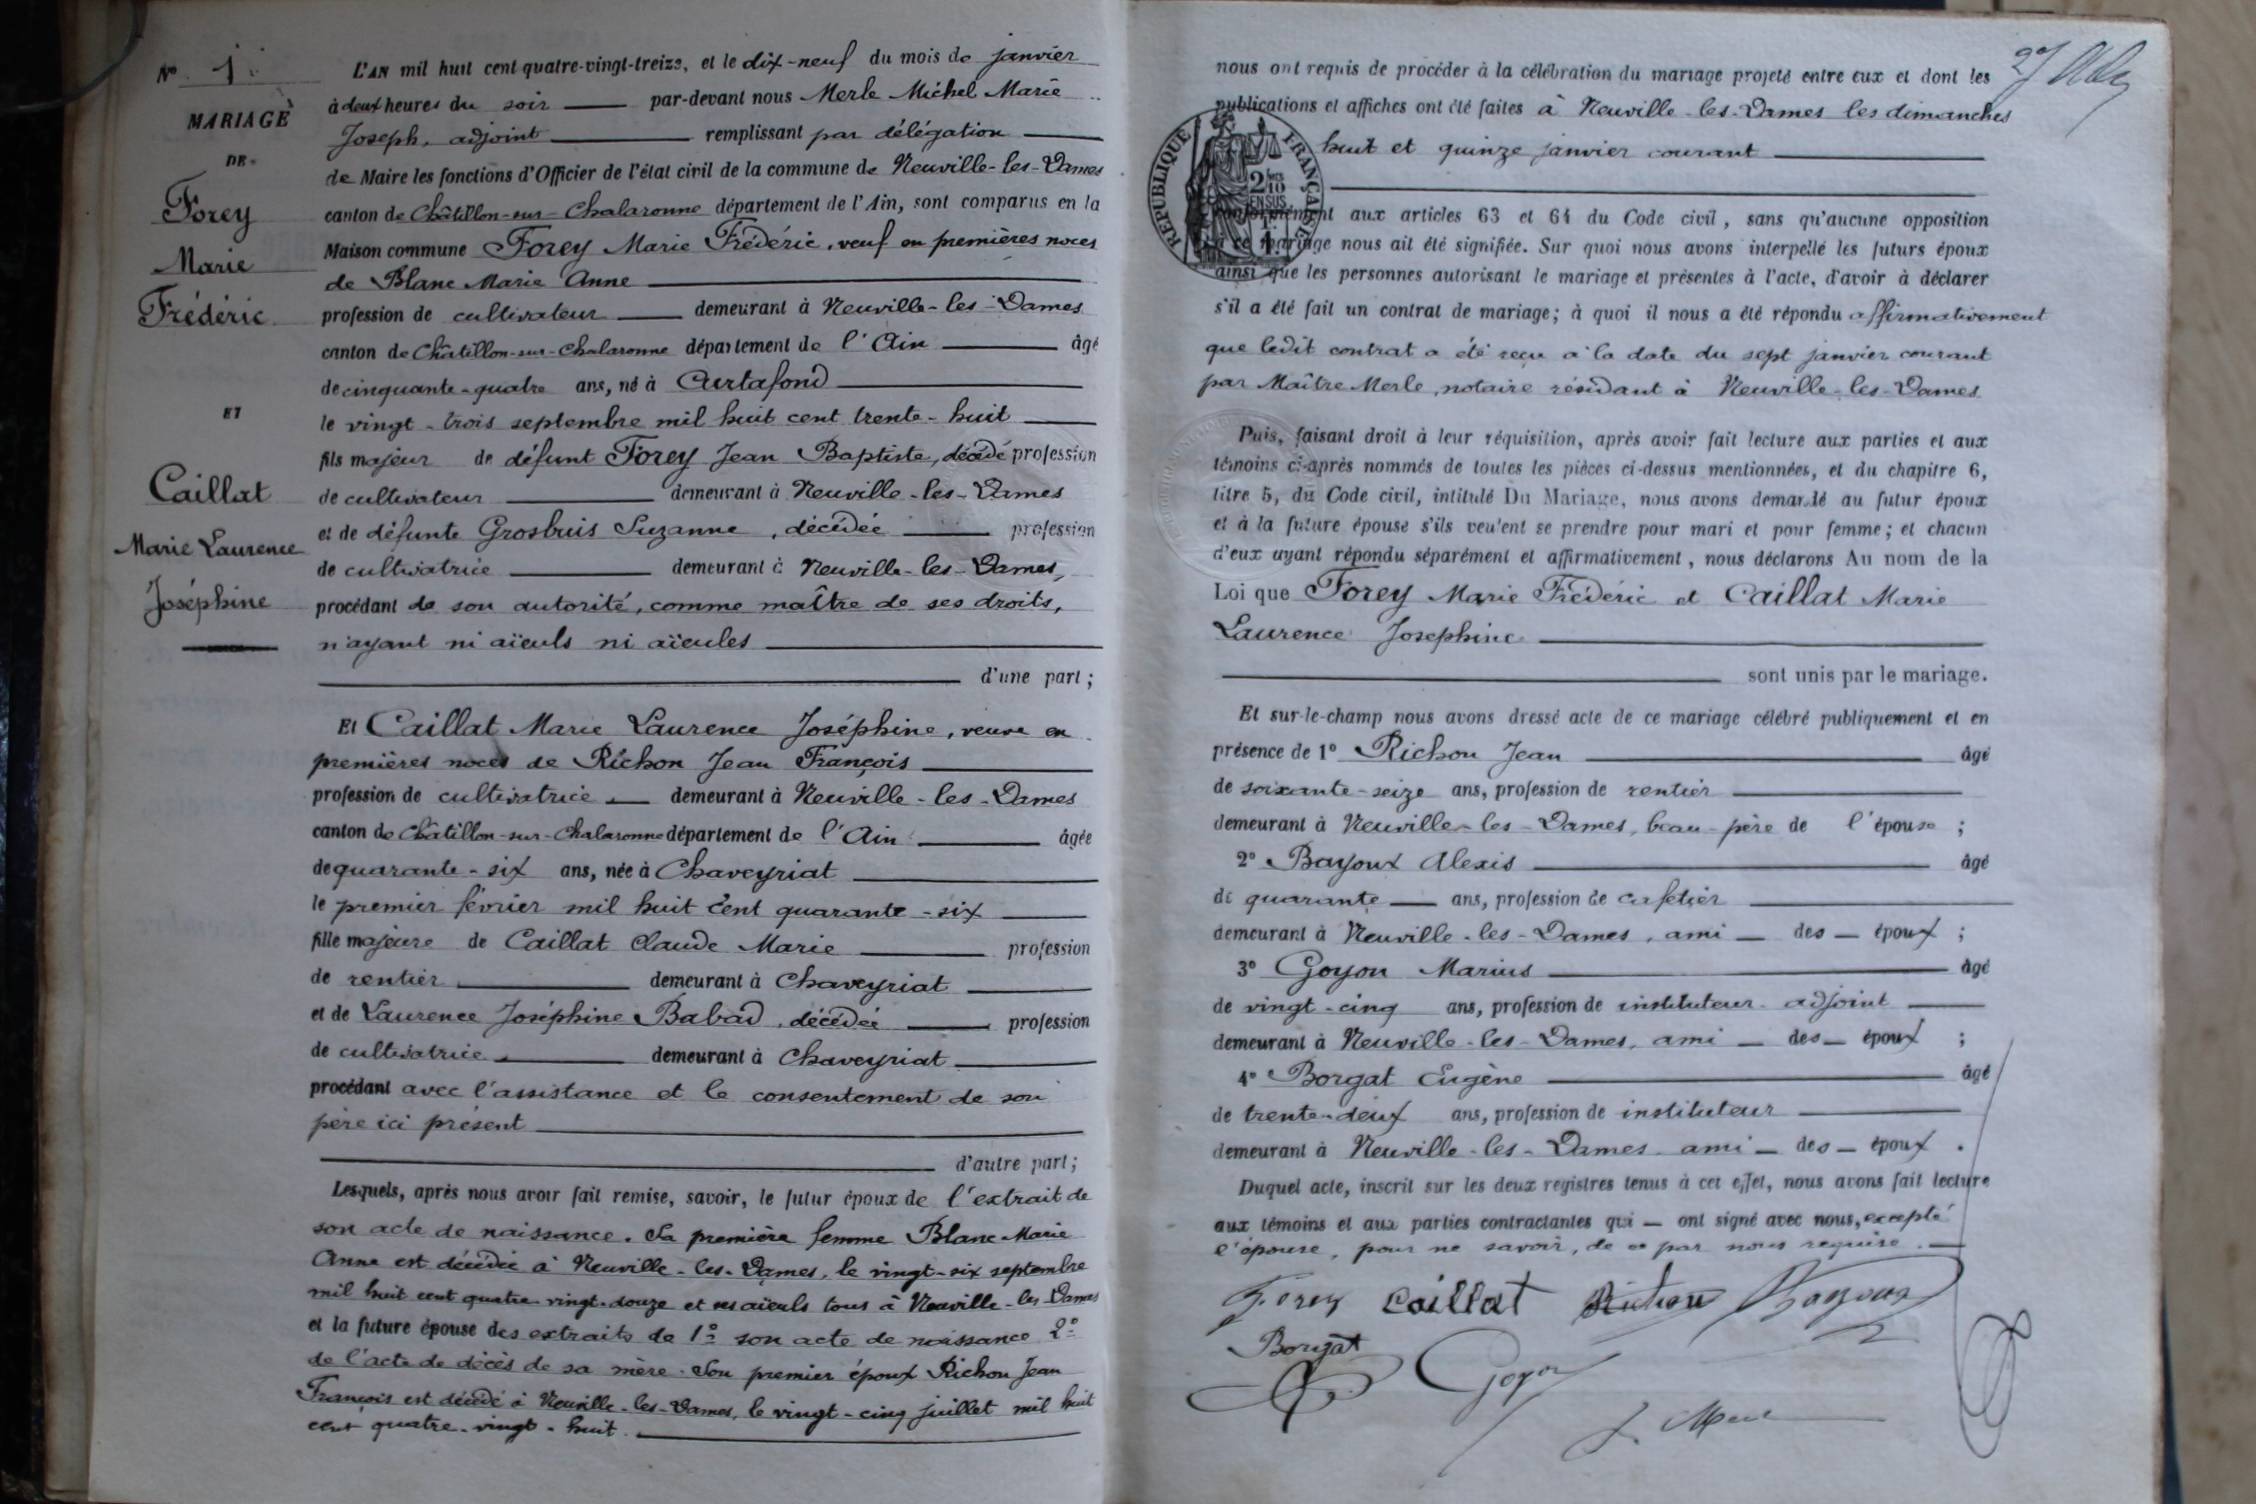 N° 1
MARIAGE
DE
Forey
Marie
Frédéric
ET
Caillat
Marie Laurence
Joséphine
L'AN mil huit cent quatre-vingt-treize, et le dix-neuf du mois de janvier
à deux heures du soir par-devant nous Merle Michel Marie
Joseph, adjoint remplissant par délégation
de Maire les fonctions d'Officier de l'état civil de la commune de Neuville-les-Dames
canton de Châtillon-sur-Chalaronne département de l'Ain, sont comparus en la
Maison commune Forey Marie Frédéric, veuf en premières noces
de Blanc Marie Anne
profession de cultivateur demeurant à Neuville-les-Dames
canton de Châtillon-sur-Chalaronne département de l'Ain âgé
de cinquante-quatre ans, né à Curtafond
le vingt-trois septembre mil huit cent trente-huit
fils majeur de défunt Forey Jean Baptiste, décédé profession
de cultivateur demeurant à Neuville-les-Dames
et de défunte Grosbuis Suzanne, décédée profession
de cultivatrice demeurant à Neuville-les-Dames,
procédant de son autorité, comme maître de ses droits,
n'ayant ni aïeuls ni aïeules
d'une part;
Et Caillat Marie Laurence Joséphine, veuve en
premières noces de Richon Jean François
profession de cultivatrice demeurant à Neuville-les-Dames
canton de Châtillon-sur-Chalaronne département de l'Ain âgée
de quarante-six ans, née à Chaveyriat
le premier février mil huit cent quarante-six
fille majeure de Caillat Claude Marie profession
de rentier demeurant à Chaveyriat
et de Laurence Joséphine Babad, décédée profession
de cultivatrice demeurant à Chaveyriat
procédant avec l'assistance et le consentement de son
père ici présent
d'autre part;
Lesquels, après nous avoir fait remise, savoir, le futur époux de l'extrait de
son acte de naissance. Sa première femme Blanc Marie
Anne est décédée à Neuville-les-Dames, le vingt-six septembre
mil huit cent quatre-vingt-douze et ses aïeuls tous à Neuville-les-Dames
et la future épouse des extraits de 1° son acte de naissance 2°
de l'acte de décès de sa mère. Son premier époux Richon Jean
François est décédé à Neuville-les-Dames, le vingt-cinq juillet mil huit
cent quatre-vingt-huit.
nous ont requis de procéder à la célébration du mariage projeté entre eux et dont les
publications et affiches ont été faites à Neuville-les-Dames les dimanches
huit et quinze janvier courant
RÉPUBLIQUE FRANÇAISE
conformément aux articles 63 et 64 du Code civil, sans qu'aucune opposition
à ce mariage nous ait été signifiée. Sur quoi nous avons interpellé les futurs époux
ainsi que les personnes autorisant le mariage et présentes à l'acte, d'avoir à déclarer
s'il a été fait un contrat de mariage; à quoi il nous a été répondu affirmativement
que ledit contrat a été reçu à la date du sept janvier courant
par Maître Merle, notaire résidant à Neuville-les-Dames
Puis, faisant droit à leur réquisition, après avoir fait lecture aux parties et aux
témoins ci-après nommés de toutes les pièces ci-dessus mentionnées, et du chapitre 6,
titre 5, du Code civil, intitulé Du Mariage, nous avons demandé au futur époux
et à la future épouse s'ils veulent se prendre pour mari et pour femme; et chacun
d'eux ayant répondu séparément et affirmativement, nous déclarons Au nom de la
Loi que Forey Marie Frédéric et Caillat Marie
Laurence Josephine
sont unis par le mariage.
Et sur-le-champ nous avons dressé acte de ce mariage célébré publiquement et en
présence de 1° Richon Jean âgé
de soixante-seize ans, profession de rentier
demeurant à Neuville-les-Dames, beau-père de l'épouse;
2° Bayoux Alexis âgé
de quarante ans, profession de cafetier
demeurant à Neuville-les-Dames, ami des époux;
3° Goyon Marius âgé
de vingt-cinq ans, profession de instituteur-adjoint
demeurant à Neuville-les-Dames, ami des époux;
4° Borgat Eugène âgé
de trente-deux ans, profession de instituteur
demeurant à Neuville-les-Dames ami des époux.
Duquel acte, inscrit sur les deux registres tenus à cet effet, nous avons fait lecture
aux témoins et aux parties contractantes qui ont signé avec nous, excepté
l'épouse, pour ne savoir, de ce par nous requise.
Forey Caillat Richon Bayoux
Borgat Goyon
J. Merle